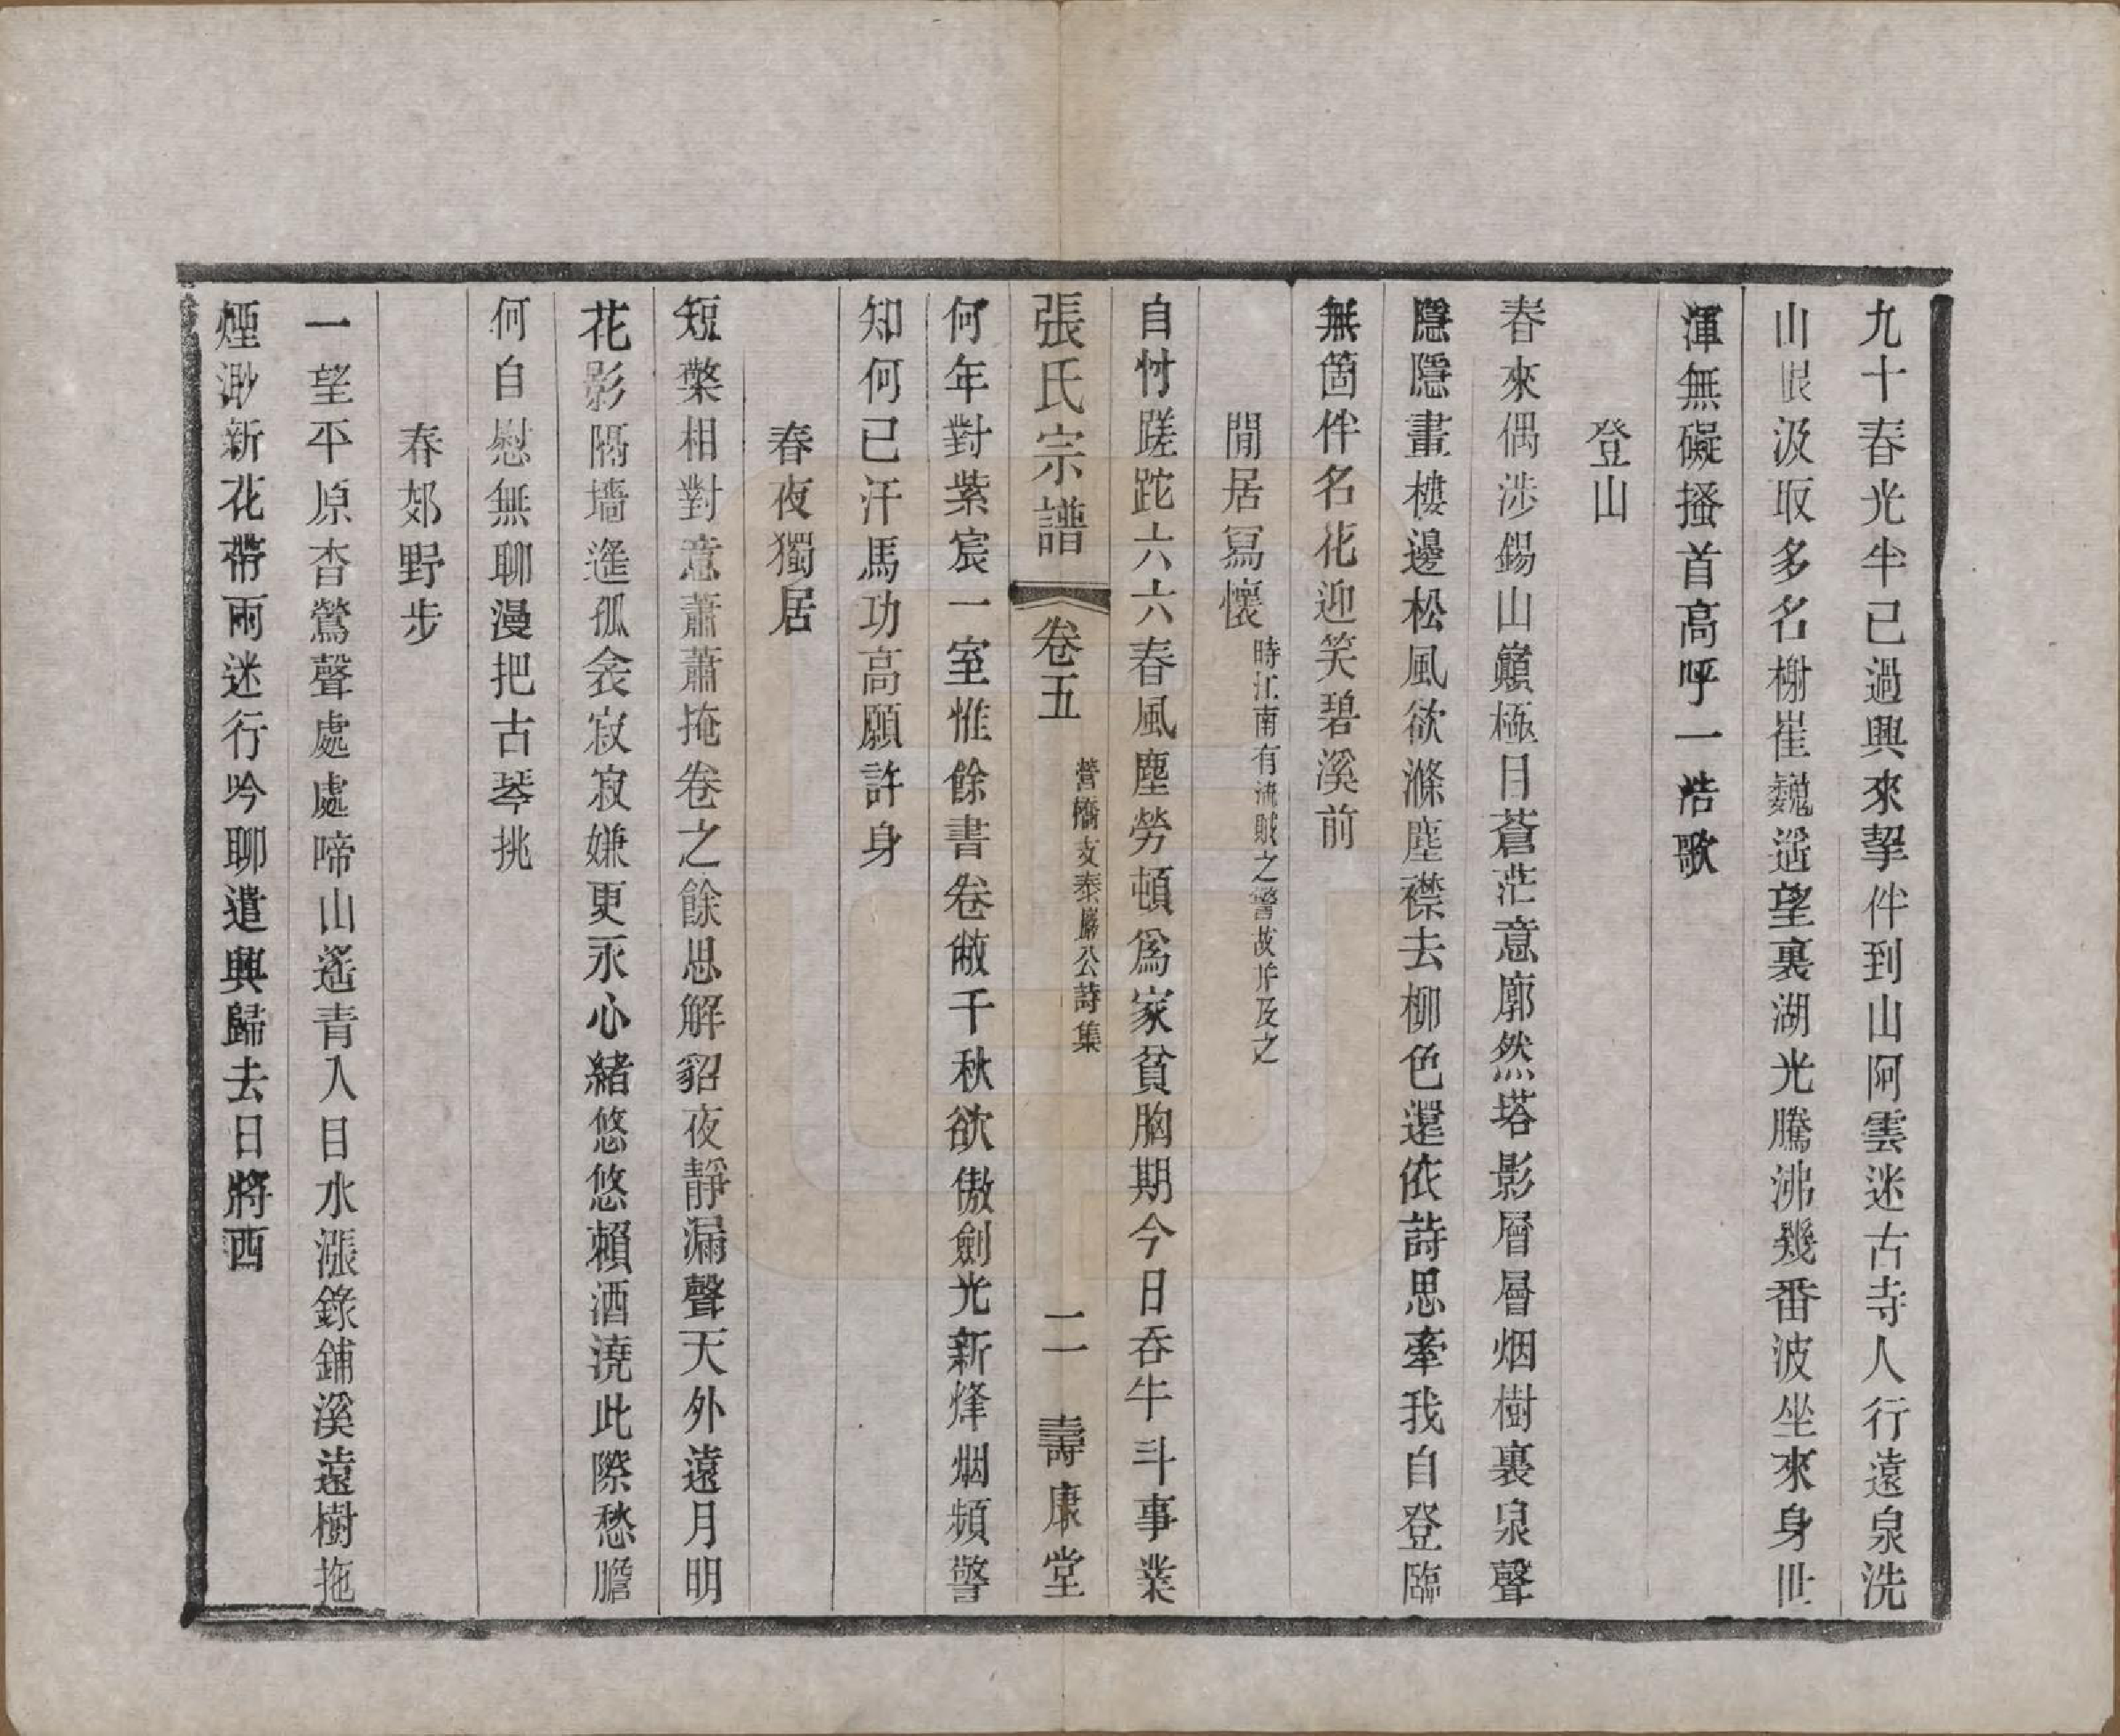 九十春光半已過興來挈伴到山阿雲迷古寺人行遠泉洗
山眼汲取多名榭崔巍遥望裏湖光騰沸幾番波坐來身世
渾無礙搔首高呼一浩歌
登山
春來偶涉錫山巔極目蒼茫意廓然塔影層層烟樹裏泉聲
隱隱畫樓邊松風欲滌塵襟去柳色還依詩思牽我自登臨
無箇伴名花迎笑碧溪前
閒居寫懷時江南有流賊之警故并及之
自忖蹉跎六六春風塵勞頓爲家貧胸期今日吞牛斗事業
張氏宗譜 卷五 營橋支泰巖公詩集 二 壽康堂
何年對紫宸一室惟餘書卷敝千秋欲傲劍光新烽烟頻警
知何已汗馬功高願許身
春夜獨居
短檠相對意蕭蕭掩卷之餘思解貂夜靜漏聲天外遠月明
花影隔墻遙孤衾寂寂嫌更永心緒悠悠賴酒澆此際愁膽
何自慰無聊漫把古琴挑
春郊野步
一望平原杳鶯聲處處啼山遙青入目水漲錄鋪溪遠樹拖
煙渺新花帶雨迷行吟聊遣興歸去日將西